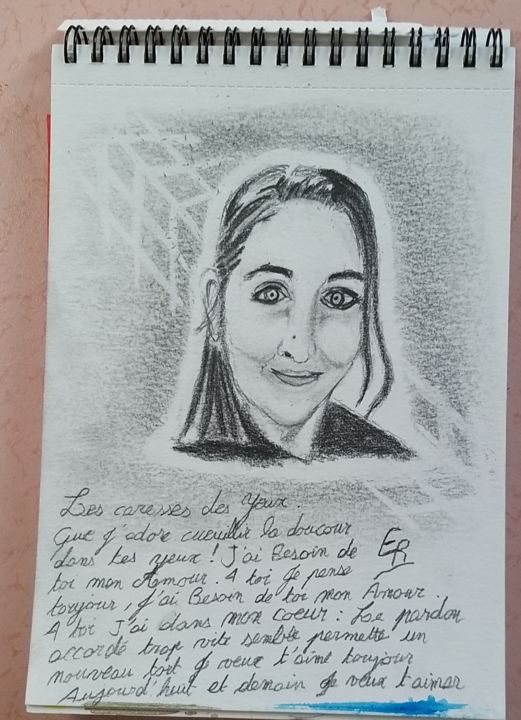 Les caresses des Yeux.
Que j'adore cueuillir la douceur
dans tes yeux ! J'ai Besoin de
toi mon Amour. A toi Je pense
toujour, j'ai Besoin de toi mon Amour.
A toi J'ai dans mon coeur : Le pardon
accordé trop vite semble permette un
nouveau tort Je veux t'aimé toujour
Aujourd'huit et demain Je veux t'aimer
ER